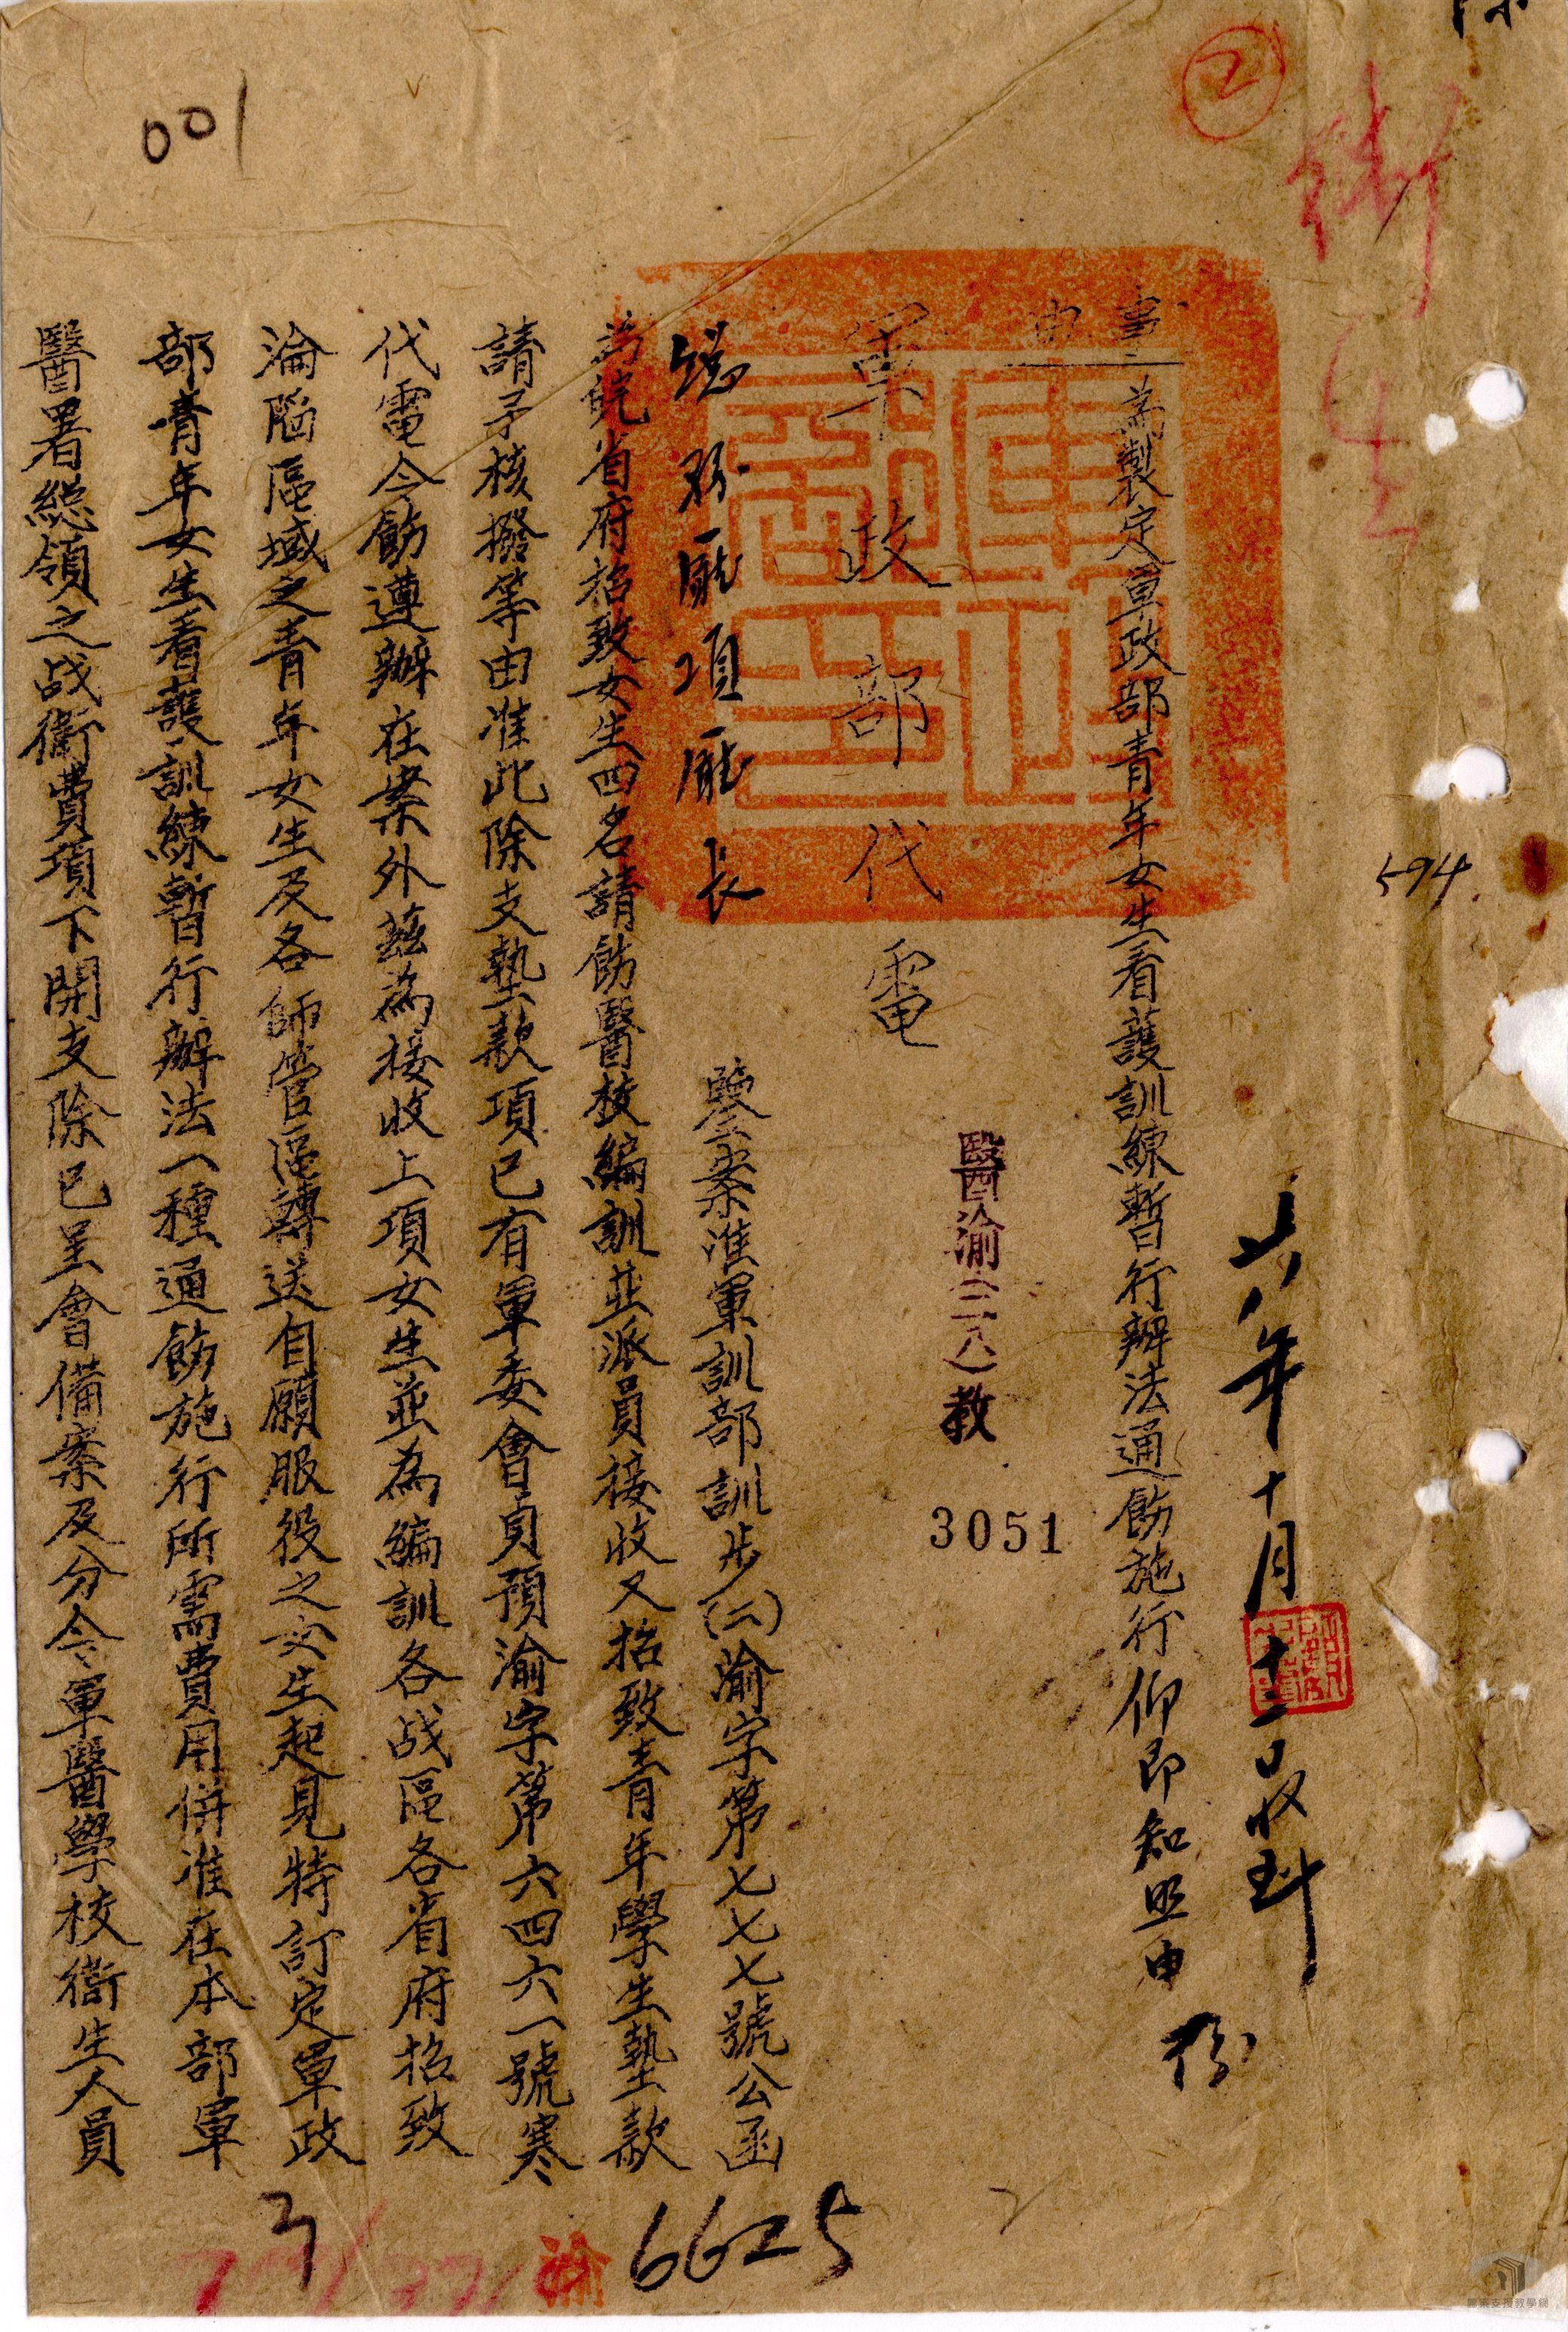 衛生
2
594.
廿八年十月十三日收到
事由 為製定軍政部青年女生看護訓練暫行辦法通飭施行仰即知照由
醫渝(二八)教
3051
軍政部代電
端務廳項廳長
鑒案准軍訓部訓步(二)渝字第七七七號公函
為皖省府招致女生四名請飭醫校編訓並派員接收又招致青年學生墊款
請予核撥等由准此除支墊款項已有軍委會貞預渝字第六四六一號寒
代電令飭遵辦在案外茲為接收上項女生並為編訓各战區各省府招致
淪陷區域之青年女生及各師管區轉送自願服役之女生起見特訂定軍政
部青年女生看護訓練暫行辦法一種通飭施行所需費用併准在本部軍
醫署總領之战衛費項下開支除已呈會備案及分令軍醫學校衛生人員
001
6625
渝
檔案支援教學網